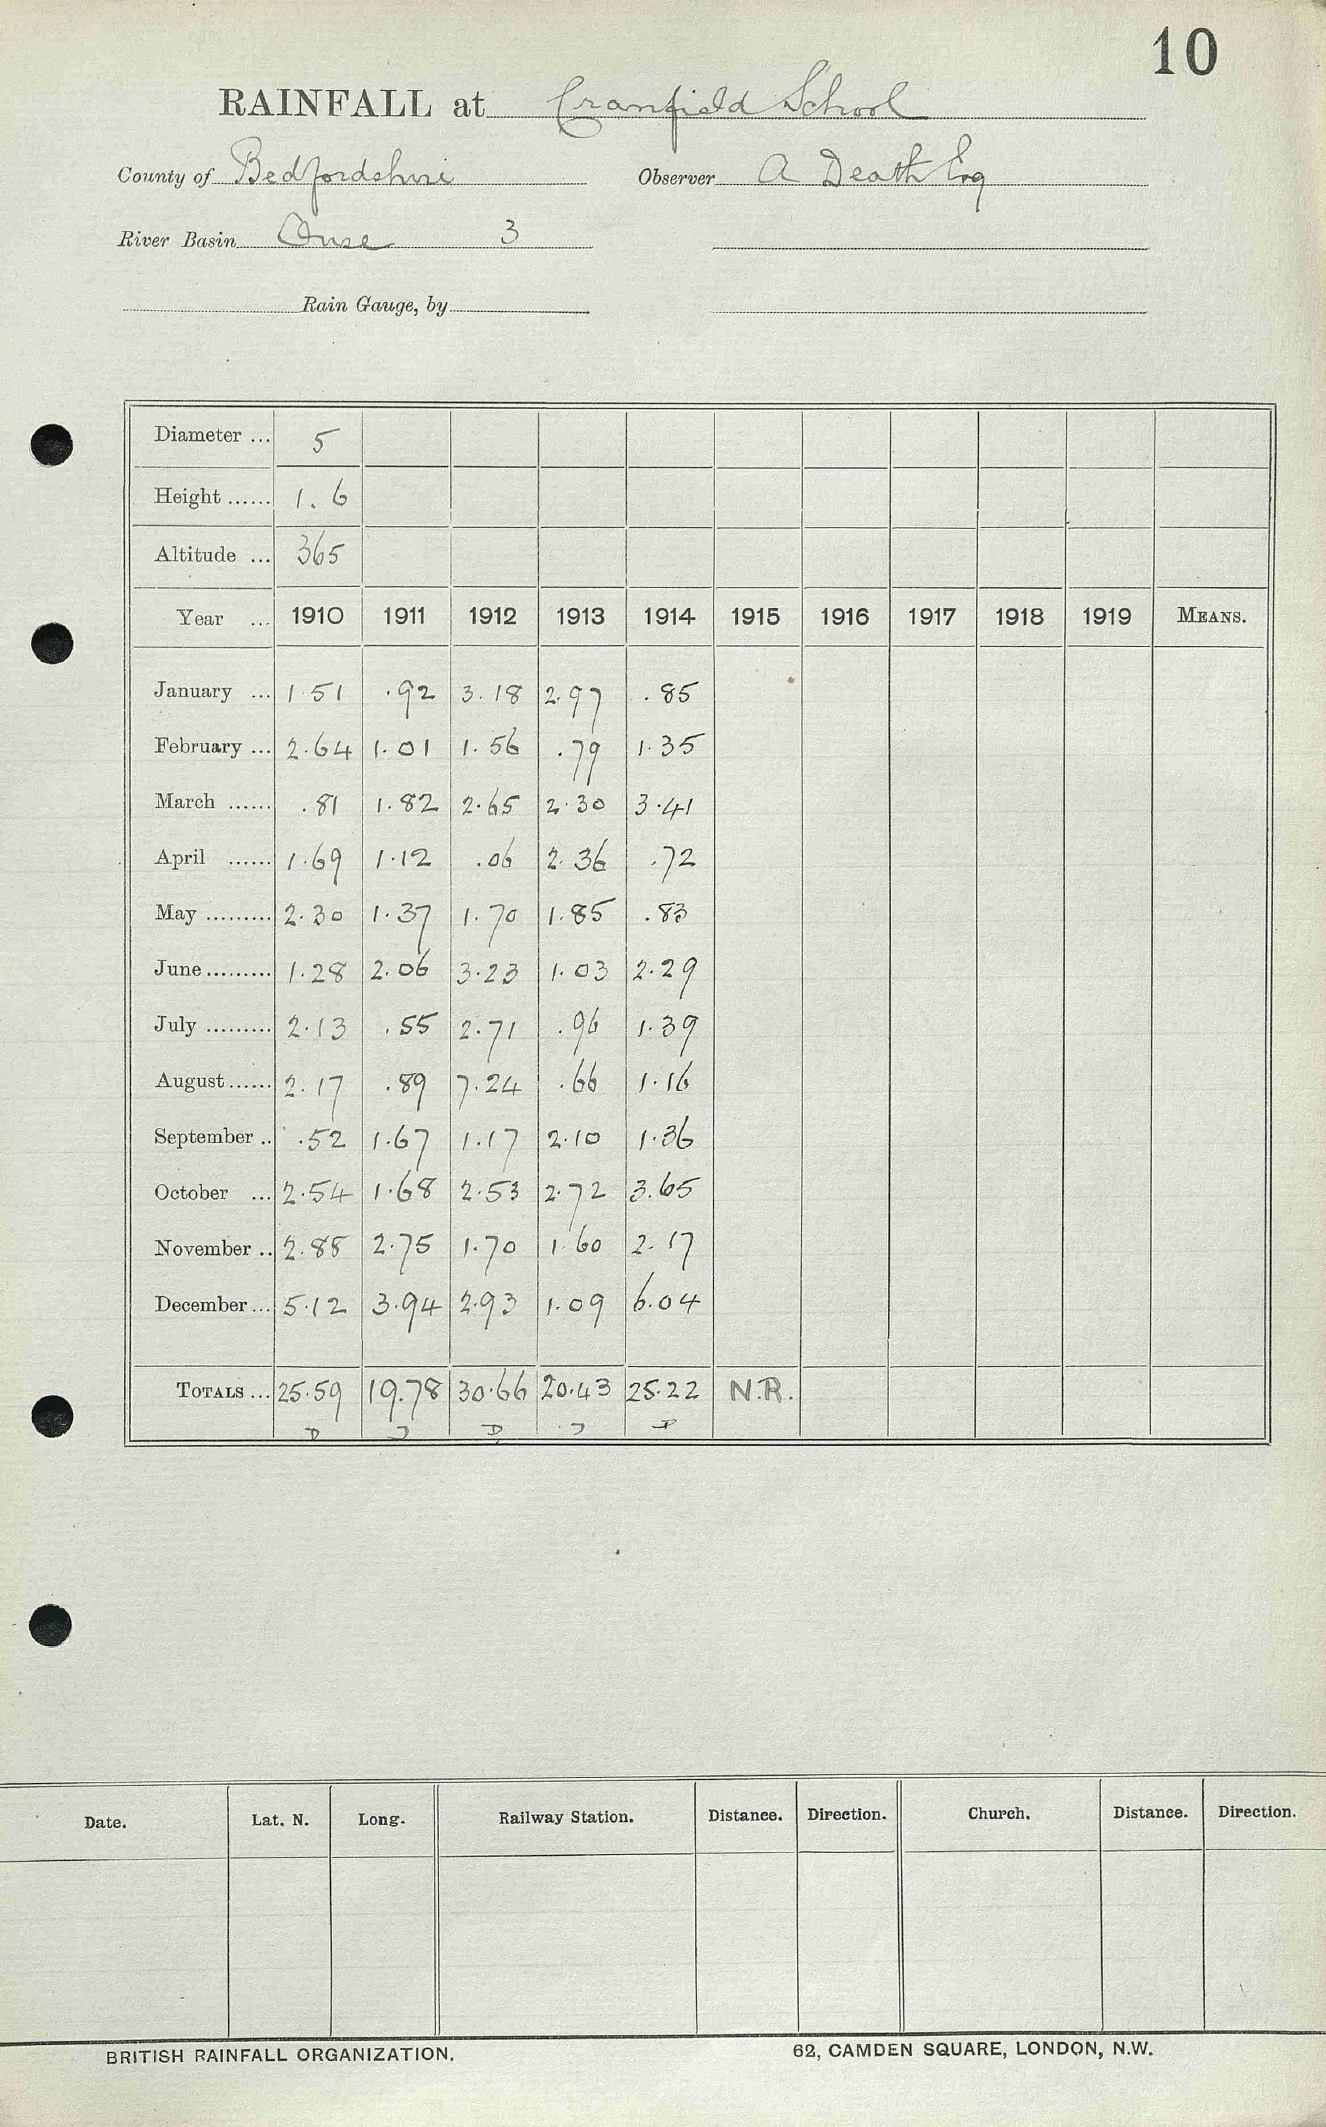 10
RAINFALL at Cranfield School
County of Bedfordshire Observer A Death Esq
River Basin Ouse 3
Rain Gauge, by
Diameter ... 5
Height ...... 1. 6
Altitude ... 365
Year ... 1910 1911 1912 1913 1914 1915 1916 1917 1918 1919 MEANS.
January ... 1.51 .92 3.18 2.97 .85
February ... 2.64 1.01 1.56 .79 1.35
March ...... .81 1.82 2.65 2.30 3.41
April ...... 1.69 1.12 .06 2.36 .72
May ......... 2.30 1.37 1.70 1.85 .83
June ......... 1.28 2.06 3.23 1.03 2.29
July ......... 2.13 .55 2.71 .96 1.39
August ...... 2.17 .89 7.24 .66 1.16
September .. .52 1.67 1.17 2.10 1.36
October ... 2.54 1.68 2.53 2.72 3.65
November .. 2.88 2.75 1.70 1.60 2.17
December ... 5.12 3.94 2.93 1.09 6.04
TOTALS ... 25.59 19.78 30.66 20.43 25.22 N.R.
D J D J P
Date. Lat. N. Long. Railway Station. Distance. Direction. Church. Distance. Direction.
BRITISH RAINFALL ORGANIZATION. 62, CAMDEN SQUARE, LONDON, N.W.